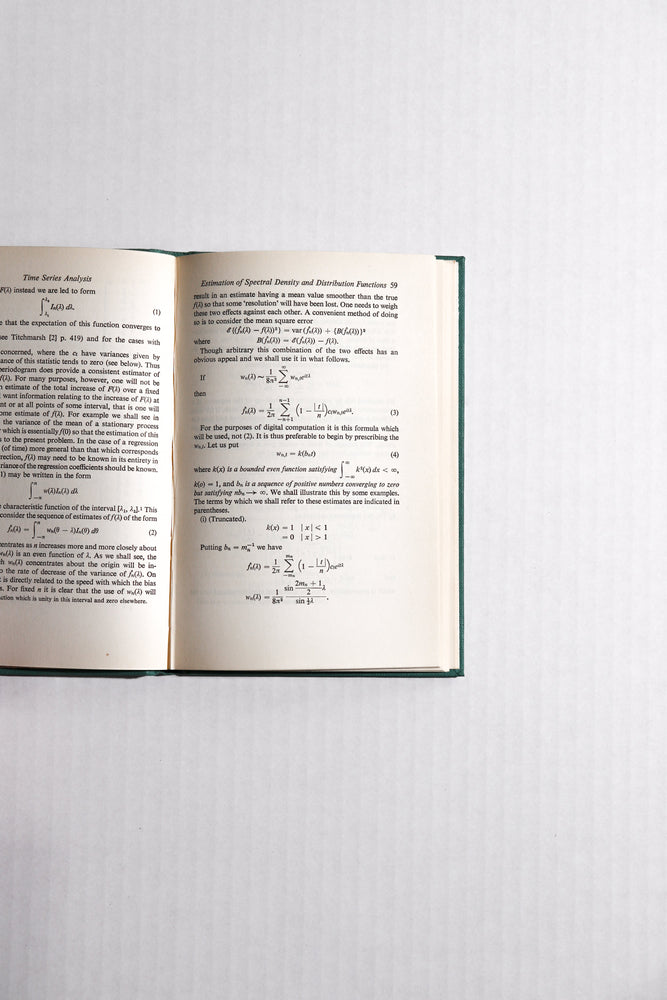 Time Series Analysis
F(λ) instead we are led to form
∫_{λ₁}^{λ₂} Iₙ(λ) dλ. (1)
e that the expectation of this function converges to
ee Titchmarsh [2] p. 419) and for the cases with
concerned, where the cₜ have variances given by
ance of this statistic tends to zero (see below). Thus
periodogram does provide a consistent estimator of
f(λ). For many purposes, however, one will not be
n estimate of the total increase of F(λ) over a fixed
want information relating to the increase of F(λ) at
nt or at all points of some interval, that is one will
ome estimate of f(λ). For example we shall see in
the variance of the mean of a stationary process
which is essentially f(0) so that the estimation of this
s to the present problem. In the case of a regression
(of time) more general than that which corresponds
rection, f(λ) may need to be known in its entirety in
riance of the regression coefficients should be known.
1) may be written in the form
∫_{−π}^{π} w(λ)Iₙ(λ) dλ
characteristic function of the interval [λ₁, λ₂].¹ This
consider the sequence of estimates of f(λ) of the form
fₙ(λ) = ∫_{−π}^{π} wₙ(θ − λ)Iₙ(θ) dθ (2)
entrates as n increases more and more closely about
wₙ(λ) is an even function of λ. As we shall see, the
h wₙ(λ) concentrates about the origin will be in-
o the rate of decrease of the variance of fₙ(λ). On
t is directly related to the speed with which the bias
s. For fixed n it is clear that the use of wₙ(λ) will
ction which is unity in this interval and zero elsewhere.
Estimation of Spectral Density and Distribution Functions 59
result in an estimate having a mean value smoother than the true
f(λ) so that some 'resolution' will have been lost. One needs to weigh
these two effects against each other. A convenient method of doing
so is to consider the mean square error
ℰ{(fₙ(λ) − f(λ))²} = var (fₙ(λ)) + {B(fₙ(λ))}²
where B(fₙ(λ)) = ℰ(fₙ(λ)) − f(λ).
Though arbitrary this combination of the two effects has an
obvious appeal and we shall use it in what follows.
If wₙ(λ) ∼ 1/8π² ∑_{−∞}^{∞} wₙ,ₜe^{itλ}
then
fₙ(λ) = 1/2π ∑_{−n+1}^{n−1} (1 − |t|/n) cₜwₙ,ₜe^{itλ}. (3)
For the purposes of digital computation it is this formula which
will be used, not (2). It is thus preferable to begin by prescribing the
wₙ,ₜ. Let us put
wₙ,ₜ = k(bₙt) (4)
where k(x) is a bounded even function satisfying ∫_{−∞}^{∞} k²(x) dx < ∞,
k(o) = 1, and bₙ is a sequence of positive numbers converging to zero
but satisfying nbₙ → ∞. We shall illustrate this by some examples.
The terms by which we shall refer to these estimates are indicated in
parentheses.
(i) (Truncated).
k(x) = 1 |x| < 1
= 0 |x| > 1
Putting bₙ = mₙ⁻¹ we have
fₙ(λ) = 1/2π ∑_{−mₙ}^{mₙ} (1 − |t|/n) cₜe^{itλ}
wₙ(λ) = 1/8π² sin (2mₙ + 1)/2 λ / sin ½λ.